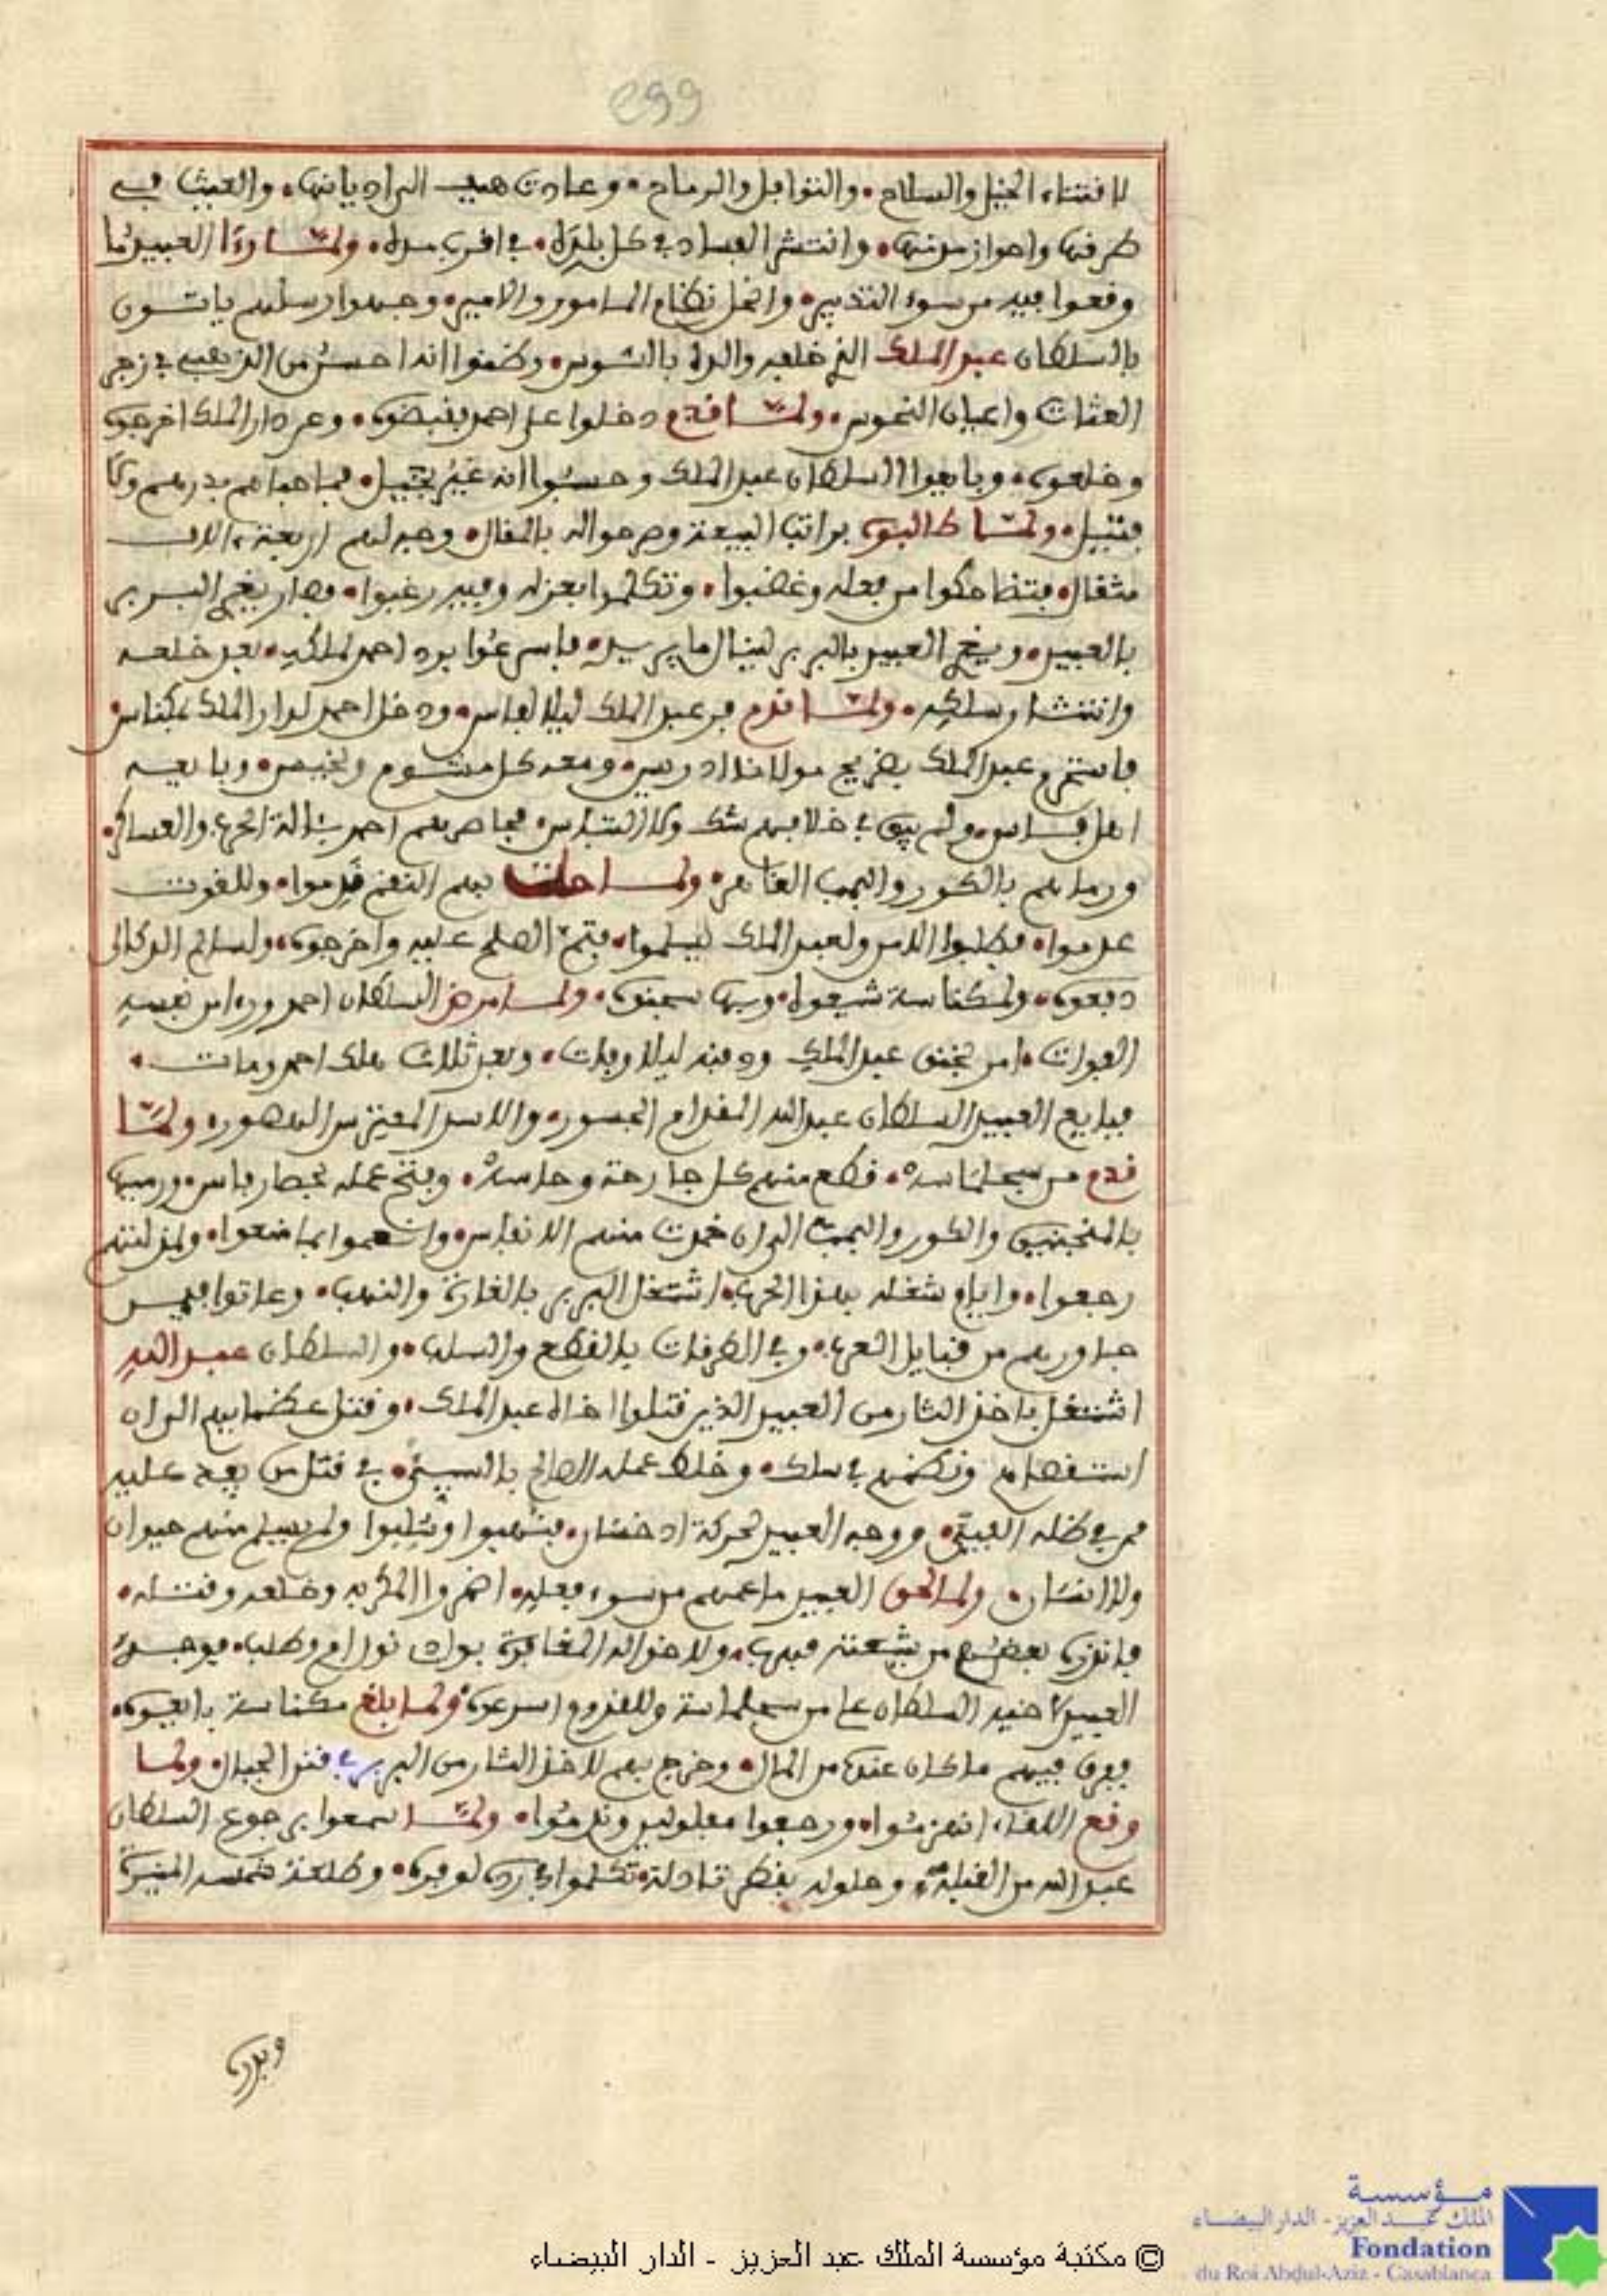 299
لاقتناء الخيل والسلاح والنوافل والرماح وعادت هيف الى اديانها والعيث في
طرقها واحواز مدنها وانتشر الفساد في كل بلده في اقرب مده ولما رءا العبيد ما
وقعوا فيه من سوء التدبير وانحل نظام المامور والامير وجهوا رسلهم ياتون
بالسلطان عبد الملك الذي خلفه والده بالسوس وظنوا انه احسن من الذهبي في زجر
العثات واعيان النحوس ولما قدم دخلوا على احمد بقبضوه وعن دار الملك اخرجوه
وخلعوه وبايعوا السلطان عبد الملك وحسبوا انه غير بخيل فما حباهم بدرهم ولا
فتيل ولما طالبوه براتب البيعة وصرحوا له بالمقال وجه لهم اربعة الاف
مثقال فتضاحكوا من فعله وغضبوا وتكلموا بعزله وفيه رغبوا وصار يغري البربر
بالعبيد ويغري العبيد بالبربر لينال ما يريد فاسرعوا برد احمد لملكه بعد خلعه
وانتشار سلكه ولما قدم فر عبد الملك ليلا لفاس ودخل احمد لدار الملك بمكناس
فاستحرم عبد الملك بضريح مولانا ادريس ومعه كل مشوم وخسيس وبايعه
اهل فاس ولم يبق في خلافهم شك ولا التباس فحاصرهم احمد بئالة الحرب والعساكر
ورماهم بالكور والبمب القاهر ولما حلت بهم النقم قدموا وللقوت
عدموا فطلبوا الامن ولعبد الملك ليسلموا فتم الصلح عليه واخرجوه ولسالم الدكالي
دفعوه ولمكناسة شيعوه وبها سجنوه ولما مرض السلطان احمد وراى من نفسه
الفوات امر بخنق عبد الملك ودفنه ليلا وبات وبعد ثلاث هلك احمد ومات
فبايع العبيد السلطان عبد الله المقدام الجسور والاسد المفترس الهصور ولما
قدم من سجلماسه قطع منهم كل جارحة وحاسه وفتح عمله بحصار فاس ورميها
بالمنجنيق والكور والبمب الى ان خمدت منهم الانفاس وانعموا بما منعوا ولمذلتهم
رجعوا وايام شغله بهذا الحرب اشتغل البربر بالغارة والنهب وعاثوا فيمن
جاورهم من قبايل العرب وفي الطرقات بالقطع والسلب والسلطان عبد الله
اشتغل باخذ الثار من العبيد الذين قتلوا اخاه عبد الملك وقتل عظماءهم الى ان
استقصاهم ونظمهم في سلك وخلط عمله الصالح بالسيئ في قتل من يقدم عليه
ممن في ظله الفيئ ووجه العبيد لحركة ادخسان فنهبوا وسلبوا ولم يسلم منهم حيوان
ولا انسان ولما لحق العبيد ما عمهم من سوء فعله اضمروا المكر به وخلعه وقتله
فانذره بعضهم من شيعته فهرب ولاخواله المغافرة بواد نول ام وطلب فوجه
العبيد لاخيه السلطان علي من سجلماسة وللقدوم اسرعوه ولما بلغ مكناسة بايعوه
ففرق فيهم ما كان عنده من المال وخرج بهم لاخذ الثار من البربر في قنن الجبال ولما
وقع اللقاء انهزموا ورجعوا مفلولين وندموا ولما سمعوا برجوع السلطان
عبد الله من القبلة وحلوله بقطر تادلة تكلموا في رده لوفره وطلعة شمسه المنيرة
وبدره
© مكتبة مؤسسة الملك عبد العزيز - الدار البيضاء
مؤسسة
الملك عبد العزيز - الدار البيضاء
Fondation
du Roi Abdul-Aziz - Casablanca